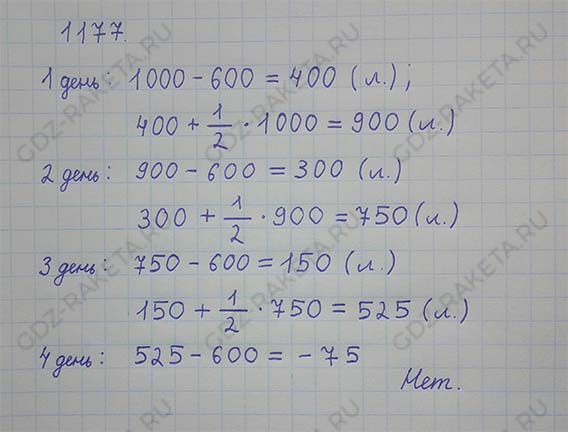 1177.
1 день: 1000 - 600 = 400 (л.);
400 + 1/2 · 1000 = 900 (л.)
2 день: 900 - 600 = 300 (л.)
300 + 1/2 · 900 = 750 (л.)
3 день: 750 - 600 = 150 (л.)
150 + 1/2 · 750 = 525 (л.)
4 день: 525 - 600 = - 75
Нет.
GDZ-RAKETA.RU